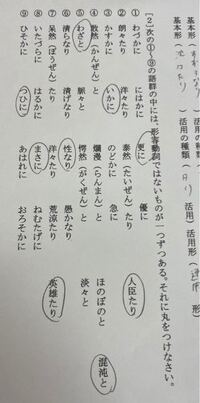 基本形（　活用の種類（　）活用）活用形（　形）
［2］次の①～⑨の語群の中には、形容動詞ではないものが一つずつある。それに丸をつけなさい。
① わづかに　にはかに　更に　優に
② 朗々たり　洋々たり　泰然（たいぜん）たり　人臣たり
③ かすかに　いかに　のどかに　急に
④ 敢然（かんぜん）と　爛漫（らんまん）と　ほのぼのと　混沌と
⑤ わざと　脈々と　愕然（がくぜん）と　淡々と
⑥ 清らなり　清げなり　性なり　愚かなり
⑦ 呆然（ぼうぜん）たり　洋々たり　荒涼たり　英雄たり
⑧ いたづらに　はるかに　まさに　ねむたげに
⑨ ひそかに　つひに　あはれに　おろそかに